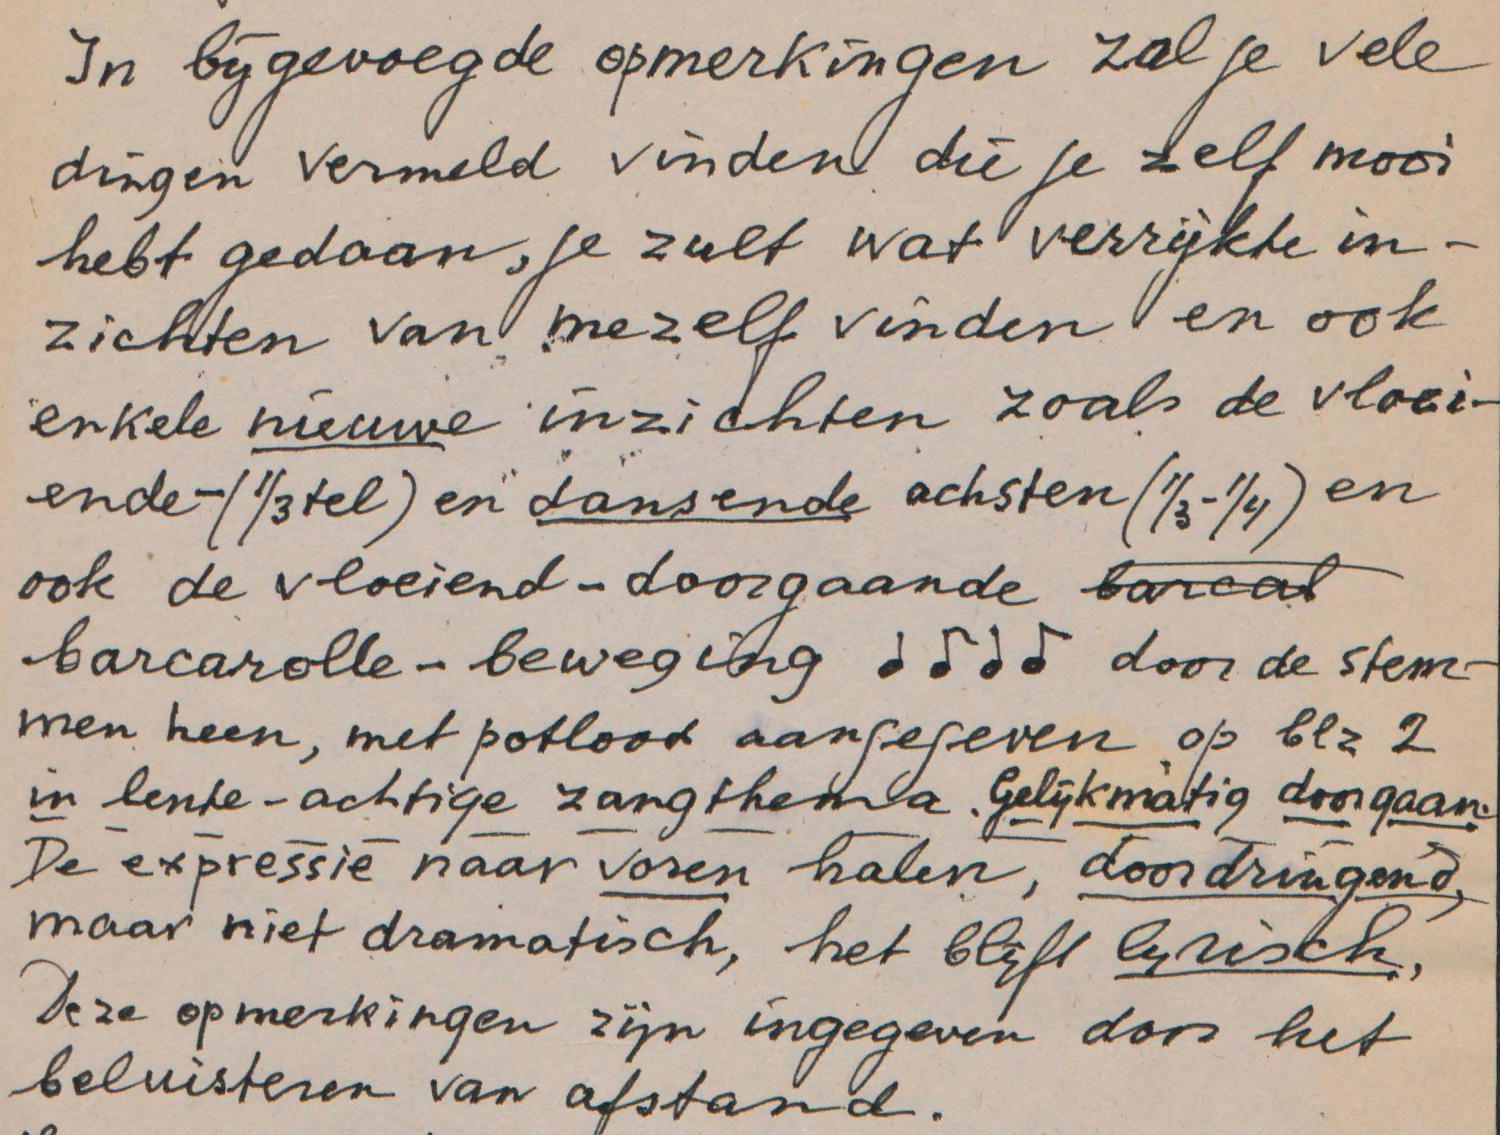 In bijgevoegde opmerkingen zal je vele
dingen vermeld vinden die je zelf mooi
hebt gedaan, je zult wat verrijkte in-
zichten van mezelf vinden en ook
enkele nieuwe inzichten zoals de vloei-
ende-(1/3 tel) en dansende achsten (1/3-1/4) en
ook de vloeiend-doorgaande barcal
barcarolle-beweging ♩♪♩♪ door de stem-
men heen, met potlood aangegeven op blz 2
in lente-achtige zangthema. Gelijkmatig doorgaan.
De expressie naar voren halen, doordringend,
maar niet dramatisch, het blijft lyrisch.
Deze opmerkingen zijn ingegeven door het
beluisteren van afstand.